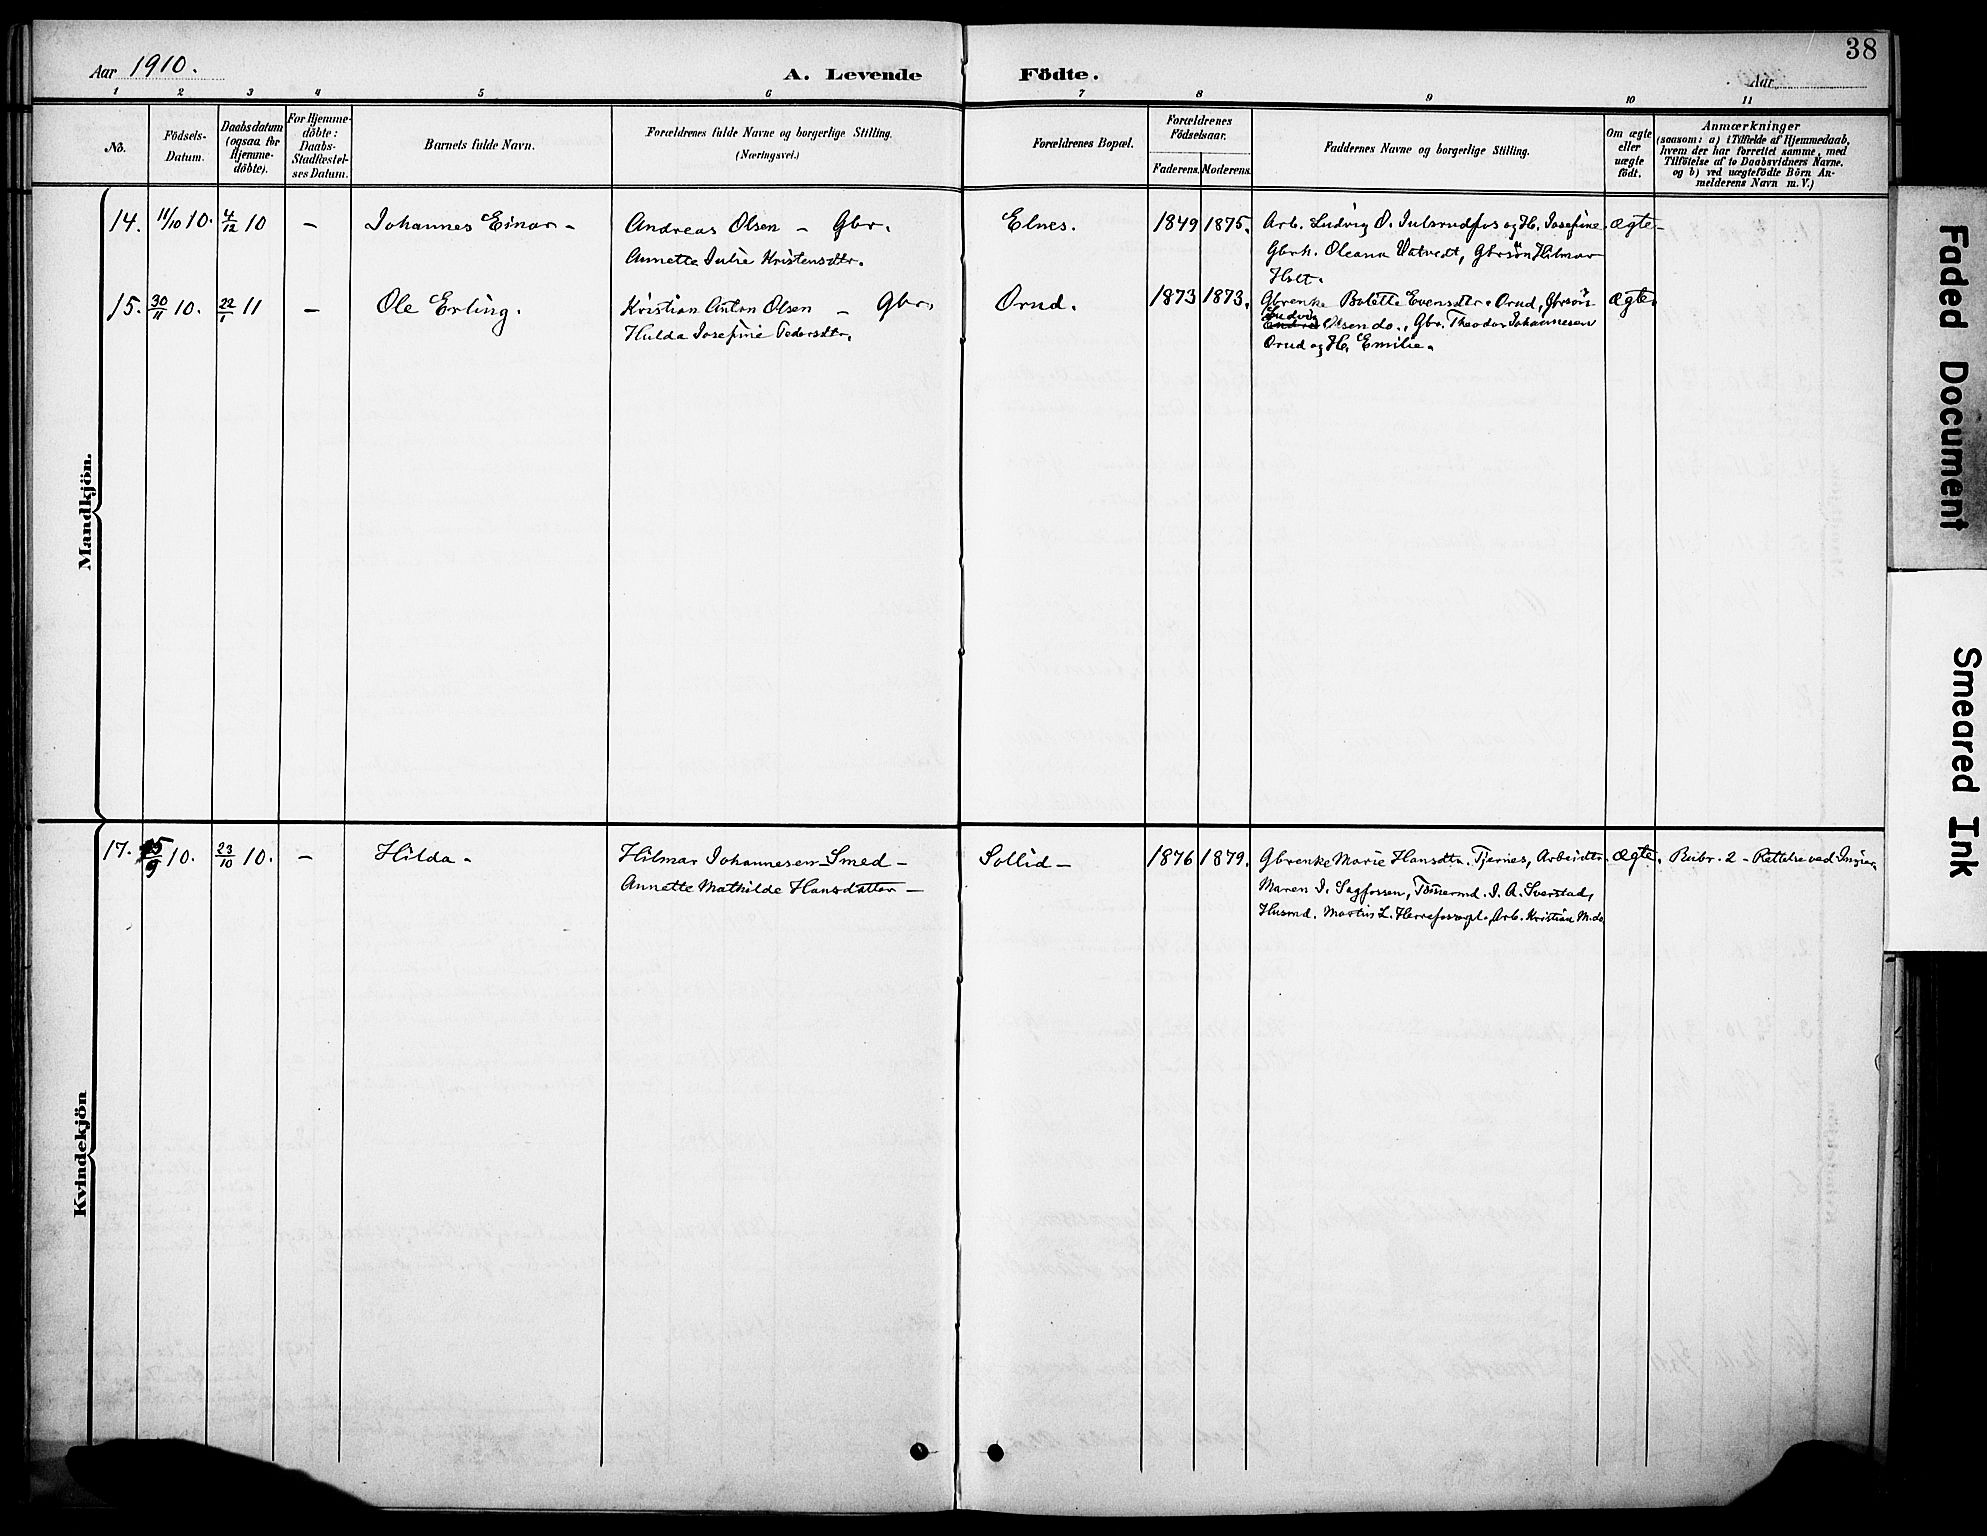 38
Aar 1910.
A. Levende Födte.
Aar
1 2 3 4 5 6 7 8 9 10 11
No.
Födsels-
Datum.
Daabsdatum
(ogsaa for
Hjemme-
döbte).
For Hjemme-
döbte:
Daabs-
Stadfæstel-
ses Datum.
Barnets fulde Navn.
Forældrenes fulde Navne og borgerlige Stilling.
(Næringsvei.)
Forældrenes Bopæl.
Forældrenes
Födselsaar.
Faderens. Moderens.
Faddernes Navne og borgerlige Stilling.
Om ægte
eller
uægte
födt.
Anmærkninger
(saasom: a) i Tilfælde af Hjemmedaab,
hvem der har forrettet samme, med
Tilföielse af to Daabsvidners Navne,
og b) ved uægtefödte Börn An-
melderens Navn m. V.)
Mandkjön.
14. 11/10 10. 4/12 10 – Johannes Einar – Andreas Olsen – Gbr. Elnes. 1849 1875. Arb. Ludvig O. Julsrudfos og H. Josefine ægte –
Annette Julie Kristensdtr. Gbrk. Oleana Vatvedt, Gbrsön Hilmar
Holt.
15. 30/11 10. 22/1 11 – Ole Erling. Kristian Anton Olsen – Gbr. Orud. 1873 1873. Gbrenke Bolette Evensdtr. Orud, Gbrsön ægte
Hulda Josefine Pedersdtr. Ludvig Olsen do., Gbr. Theodor Johannesen
Orud og H. Emilie.
Kvindekjön
17. 15/9 10. 23/10 10. – Hilda. Hilmar Johannesen Smed – Sollid – 1876 1879. Gbrenke Marie Hansdtr. Tjernes, Arbeidtr. ægte. Rubr. 2 – Rettelse ved
Annette Mathilde Hansdatter – Maren J. Sagfossen, Tömmermd. J. A. Sverstad,
Husmd. Martin L. Arb. Kristian M. do
Faded Document
Smeared Ink